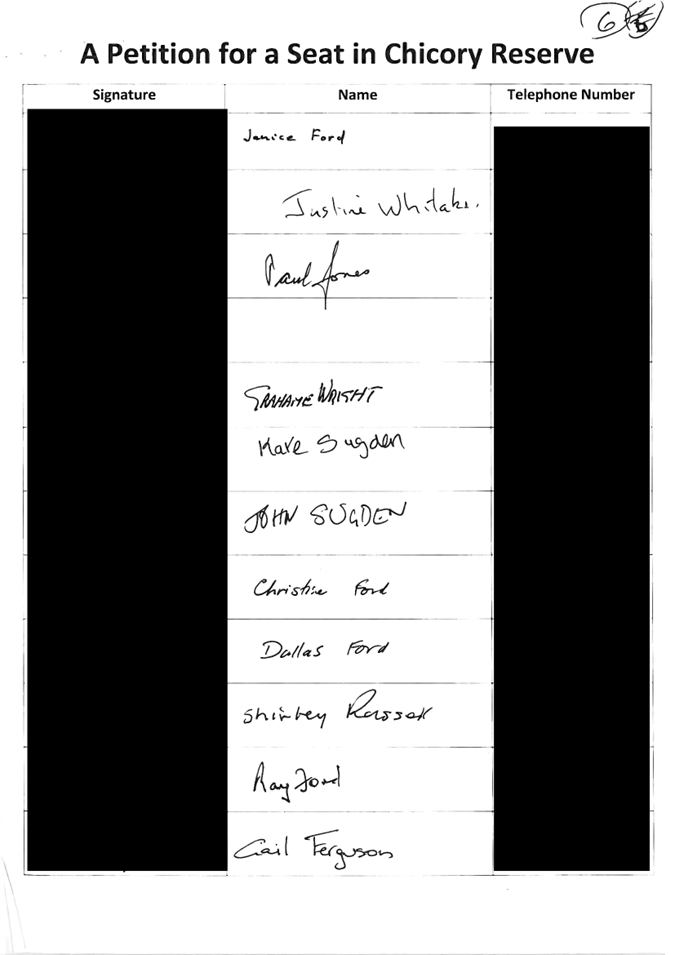 6
A Petition for a Seat in Chicory Reserve
Signature Name Telephone Number
Janice Ford
Justine Whitaker
Paul Jones
GRAHAME WRIGHT
Kate Sugden
JOHN SUGDEN
Christine Ford
Dallas Ford
Shirley
Ray Ford
Gail Ferguson